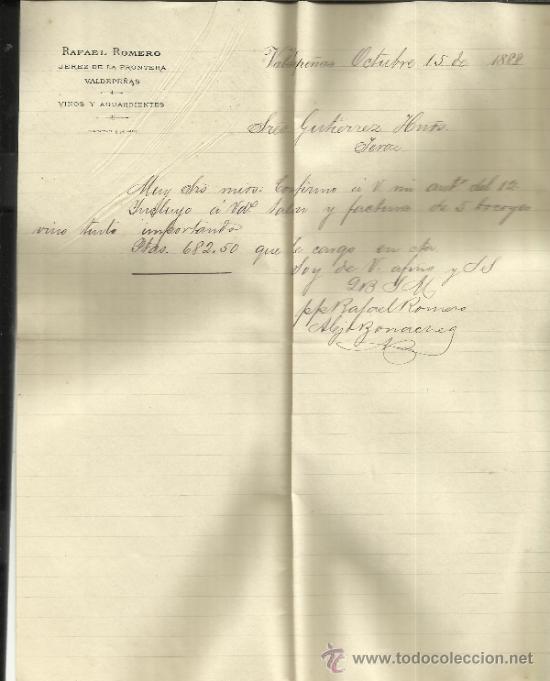 RAFAEL ROMERO
JEREZ DE LA FRONTERA
VALDEPEÑAS
VINOS Y AGUARDIENTES
Valdepeñas Octubre 15 de 1888
Sres Gutierrez Hnos.
Jerez
Muy Srs mios: Confirmo á V. mi antr del 12
Incluyo á Vds. talon y factura de 5 bocoyes
vino tinto importando
Ptas. 682.50 que le cargo en cta
Soy de V. afmo y SS
QBSM
pp Rafael Romero
todocoleccion
www.todocoleccion.net